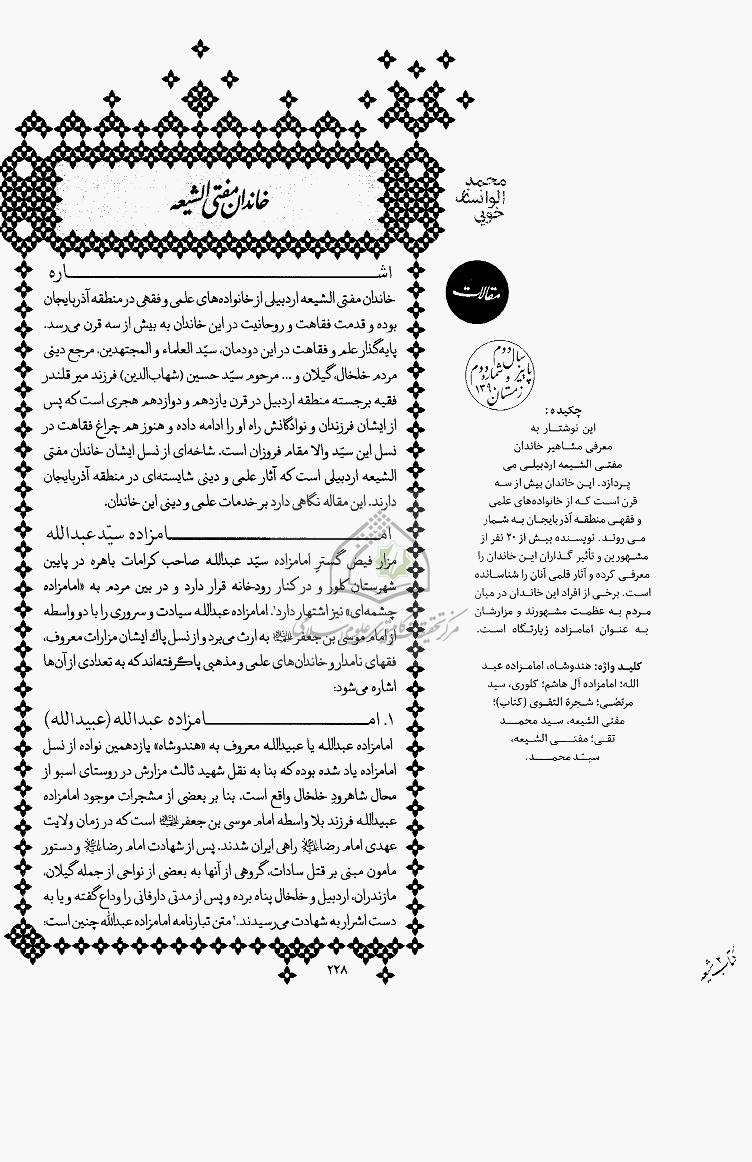 خاندان مفتی الشیعه
محمد
الوانساز
خویی
مقالات
سال دوم
پاییز و شماره دوم
زمستان ۱۳۹۰
چکیده:
این نوشتار به
معرفی مشاهیر خاندان
مفتی الشیعه اردبیلی می
پردازد. این خاندان بیش از سه
قرن است که از خانواده‌های علمی
و فقهی منطقه آذربایجان به شمار
می روند. نویسنده بیش از ۲۰ نفر از
مشهورین و تأثیر گذاران این خاندان را
معرفی کرده و آثار قلمی آنان را شناسانده
است. برخی از افراد این خاندان در میان
مردم به عظمت مشهورند و مزارشان
به عنوان امامزاده زیارتگاه است.
کلید واژه: هندوشاه، امامزاده عبد
الله؛ امامزاده آل هاشم؛ کلوری، سید
مرتضی؛ شجرة التقوی (کتاب)؛
مفتی الشیعه، سید محمد
تقی؛ مفتی الشیعه،
سیّد محمد.
اشاره
خاندان مفتی الشیعه اردبیلی از خانواده‌های علمی و فقهی در منطقه آذربایجان
بوده و قدمت فقاهت و روحانیت در این خاندان به بیش از سه قرن می‌رسد.
پایه‌گذار علم و فقاهت در این دودمان، سیّد العلماء و المجتهدین، مرجع دینی
مردم خلخال،گیلان و ... مرحوم سیّد حسین (شهاب‌الدین) فرزند میر قلندر
فقیه برجسته منطقه اردبیل در قرن یازدهم و دوازدهم هجری است که پس
از ایشان فرزندان و نوادگانش راه او را ادامه داده و هنوز هم چراغ فقاهت در
نسل این سیّد والا مقام فروزان است. شاخه‌ای از نسل ایشان خاندان مفتی
الشیعه اردبیلی است که آثار علمی و دینی شایسته‌ای در منطقه آذربایجان
دارند. این مقاله نگاهی دارد بر خدمات علمی و دینی این خاندان.
امامزاده سیّد عبدالله
مزار فیض گسترِ امامزاده سیّد عبدالله صاحب کرامات باهره در پایین
شهرستان کلور و در کنار رودخانه قرار دارد و در بین مردم به «امامزاده
چشمه‌ای» نیز اشتهار دارد.۱ امامزاده عبدالله سیادت و سروری را با دو واسطه
از امام موسی بن جعفر(علیه‌السلام) به ارث می‌برد و از نسل پاك ایشان مزارات معروف،
فقهای نامدار و خاندان‌های علمی و مذهبی پا گرفته‌اند که به تعدادی از آن‌ها
اشاره می‌شود:
۱. امامزاده عبدالله (عبیدالله)
امامزاده عبدالله یا عبیدالله معروف به «هندوشاه» یازدهمین نواده از نسل
امامزاده یاد شده بوده که بنا به نقل شهید ثالث مزارش در روستای اسبو از
محال شاهرودِ خلخال واقع است. بنا بر بعضی از مشجرات موجود امامزاده
عبیدالله فرزند بلا واسطه امام موسی بن جعفر(علیه‌السلام) است که در زمان ولایت
عهدی امام رضا(علیه‌السلام) راهی ایران شدند. پس از شهادت امام رضا(علیه‌السلام) و دستور
مامون مبنی بر قتل سادات، گروهی از آنها به بعضی از نواحی از جمله گیلان،
مازندران، اردبیل و خلخال پناه برده و پس از مدتی دارفانی را وداع گفته و یا به
دست اشرار به شهادت می‌رسیدند.۲ متن تبارنامه امامزاده عبدالله چنین است:
۲۲۸
کتاب شیعه ۲